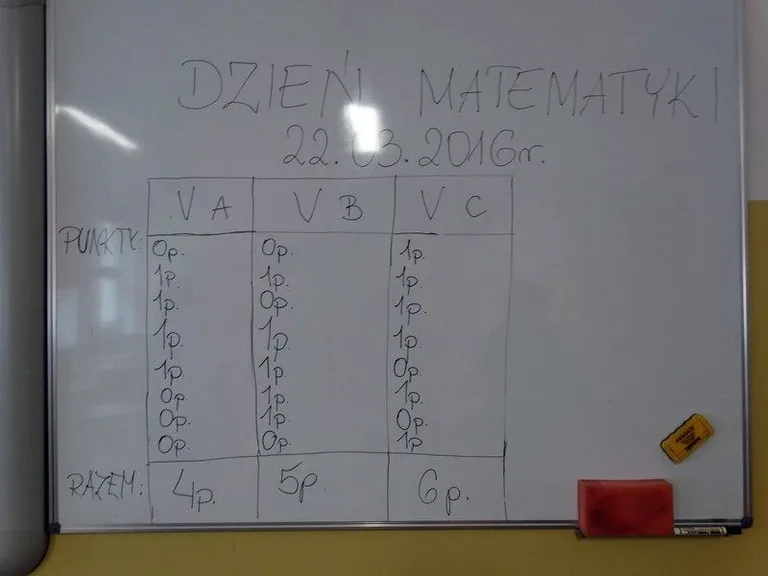 DZIEŃ MATEMATYKI
22.03.2016r.
V A V B V C
PUNKTY: 0p. 0p. 1p.
1p. 1p. 1p.
1p. 0p. 1p.
1p. 1p. 1p.
1p. 1p. 0p.
0p. 1p. 1p.
0p. 1p. 0p.
0p. 0p. 1p
RAZEM: 4p. 5p. 6p.